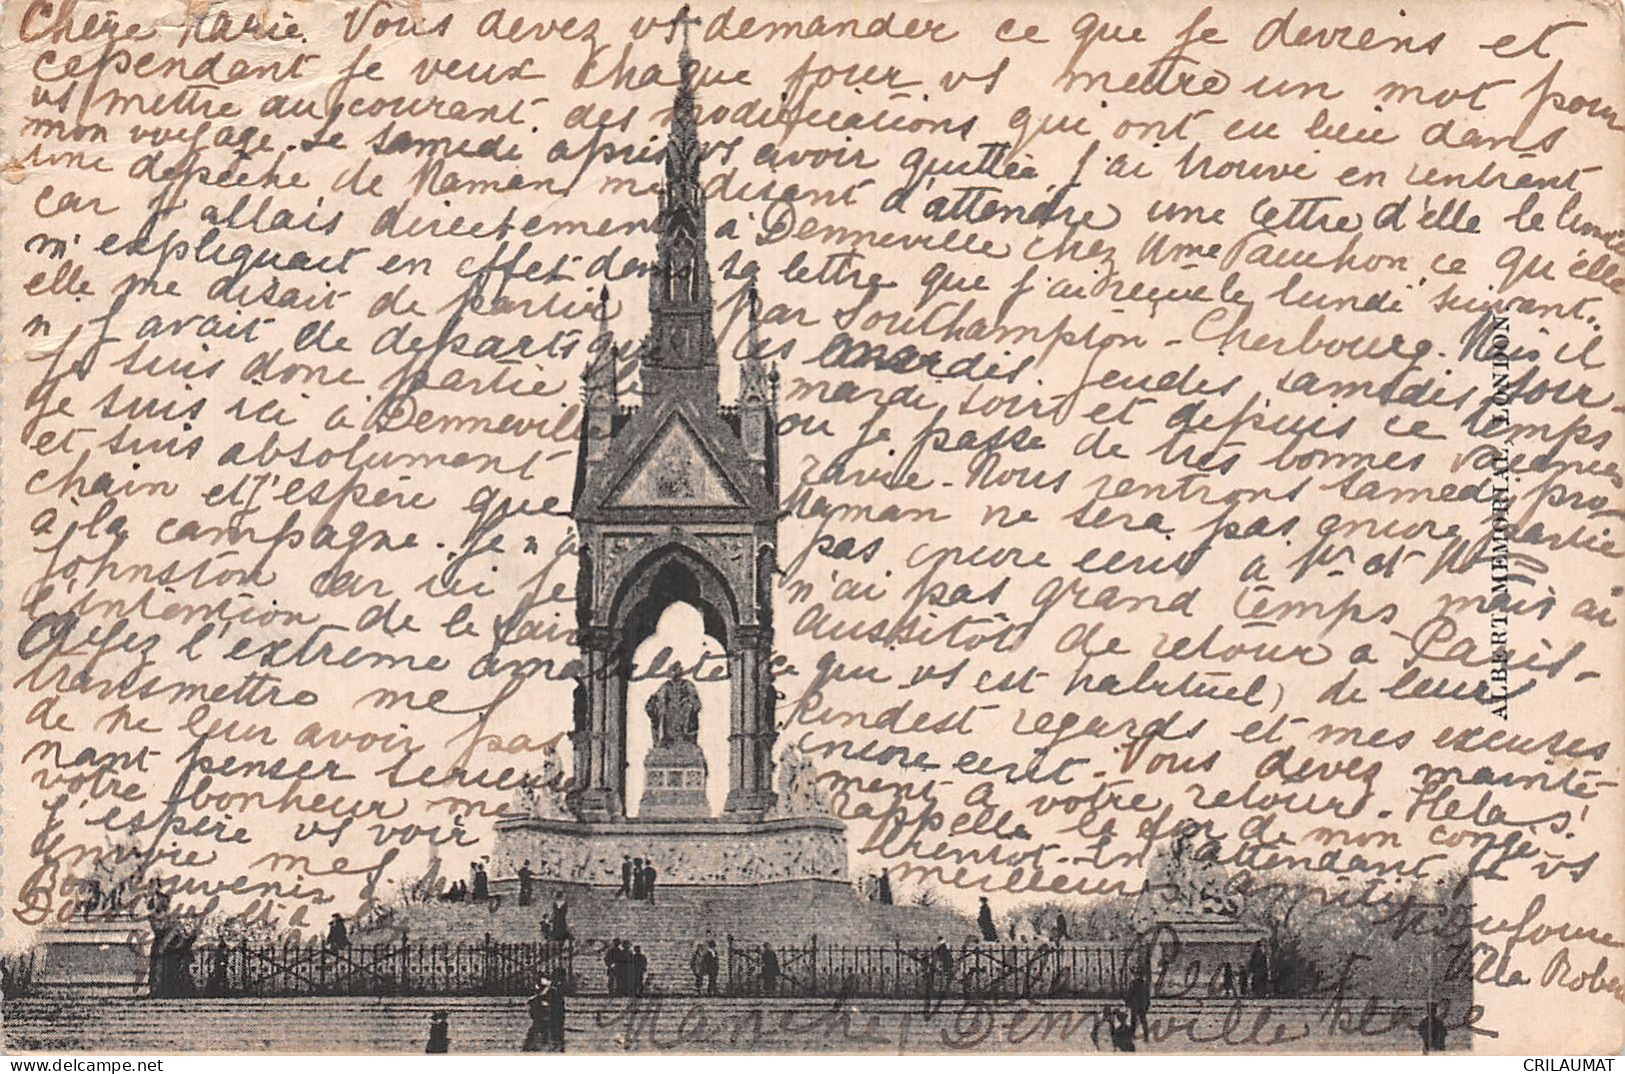 Chère Marie. Vous devez vs demander ce que je deviens et
cependant je veux chaque jour vs mettre un mot pour
vs mettre au courant des modifications qui ont eu lieu dans
mon voyage. Le samedi après vs avoir quittée j'ai trouvé en rentrant
une depêche de Maman me disant d'attendre une lettre d'elle le lundi
car j'allais directement à Denneville chez Mme Pauchon ce qu'elle
m'expliquait en effet dans sa lettre que j'ai reçue le lundi suivant.
elle me disait de partir par Southampton - Cherbourg. Mais il
n'y avait de departs que les mardis jeudis samedis
Je suis donc partie le mardi soir et depuis ce temps
je suis ici à Denneville ou je passe de très bonnes vacances
et suis absolument ravie. Nous rentrons samedi pro-
chain et j'espère que Maman ne sera pas encore partie
à la campagne. Je n'ai pas encore ecrit à Mr et M
Johnston car ici je n'ai pas grand temps mais ai
l'intention de le faire aussitôt de retour à Paris -
Ayez l'extrême amabilité ce qui vs est habituel, de leur
transmettre mes kindest regards et mes excuses
de ne leur avoir pas encore ecrit. Vous devez mainte-
nant penser serieusement à votre retour. Helas!
votre bonheur me rappelle la fin de mon congé
J'espère vs voir bientôt. En attendant je vs
envoie mes meilleures amitiés
Bon souvenir
Villa Robert
Denneville plage
Manche
ALBERT MEMORIAL, LONDON.
CRILAUMAT